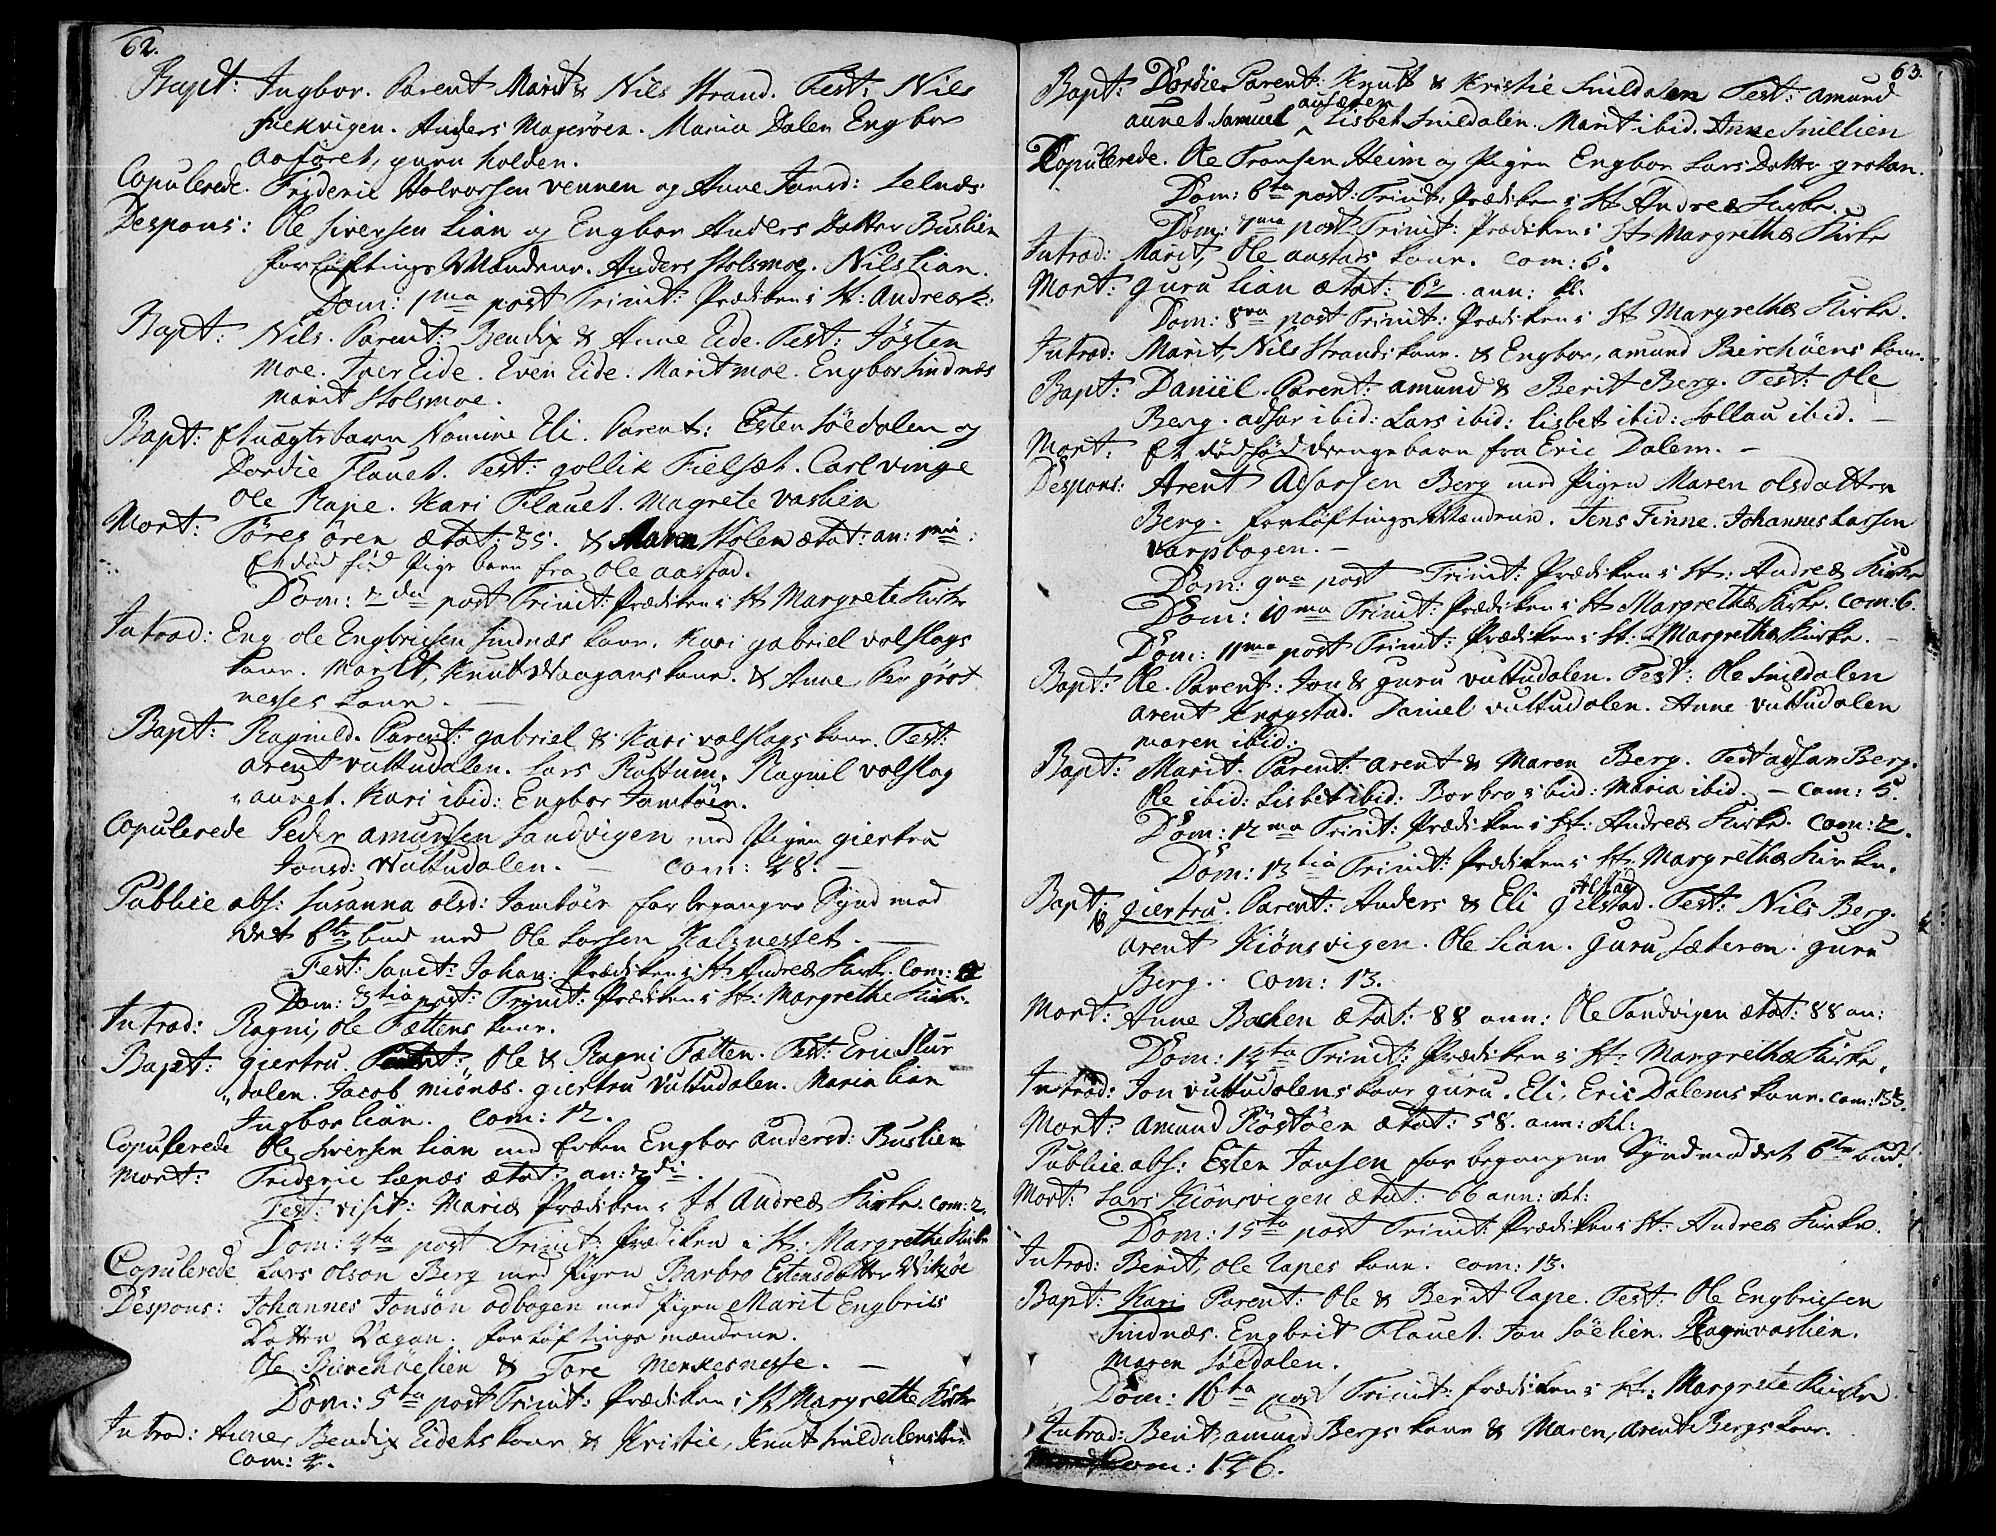 62.
Bapt: Ingbor. Parent Marit & Nils Strand. Test: Nils
Anders Magerøen. Maria Dalen Engbor
Aafaret, guru holden.
Copulerede. Frideric Halvorsen vennen og Anne Jansd: Selnæs
Despons: Ole Siversen Lian og Engbor Anders Datter Buslien
forløftings Mændene. Anders Stolsmoe. Nils Lian.
Dom: 1ma post Trinit: Prædiken i St: Andreæ k:
Bapt: Nils. Parent: Bendix & Anne Eide. Test: Jøsten
Moe. Iver Eide. Even Eide. Marit moe. Engbor Sindnæs
Marit Stolsmoe.
Bapt: Et uægte barn Nomine Eli. Parent: Esten Søedalen og
Dordie Flauet. Test: gollik Fielset. Carl vinge
Ole Rape. Kari Flauet. Magrete vaslien
Mort: Tøres ören ætat: 35. & Maren Stolen ætat: an: 1mi:
Et død fød Pige barn fra Ole aastad.
Dom: 2da post Trinit: Prædiken i St Margrete Kirke
Introd: Eng ole Engbricsen Sindnæs kone. Kari gabriel volslags
kone. Marit, Knut Waagans kone. & Anne Per grøt
nesses kone.
Bapt: Ragnild. Parent: gabriel & Kari volslags kone. Test:
arent vuttudalen. Lars Rostum. Ragnil volslag
aunet. Kari ibid: Engbor Jamtøen.
Copulerede Peder amundsen Sandvigen med Pigen giertru
Jonsd: Vuttudalen. com: 48.
Publice abs: Susanna olsd: Jamtøen for begangne Synd mod
det 6te bud med Ole Larsen Kalznesset.
Fest: Sanct: Johan: Prædiken i St: Andreæ Kirke. Com:
Dom: 3tia post: Trinit: Prædiken i St: Margrethe Kirke.
Introd: Ragni, Ole Fættens kone.
Bapt: giertru. Parent: Ole & Ragni Fætten. Test: Eric Stur
dalen. Jacob miønæs. giertru Vuttudalen. Maria lian
Ingbor lian. Com: 12.
Copulerede Ole Siversen Lian med Enken Engbor andersd: Buslien
Mort: Frideric Lænæs ætat: an: 2di.
Fest: visit: Mariæ Prædiken i St Andreæ Kirke. com: 2.
Dom: 4ta post Trinit: Prædiken i St: Margrethe Kirke
Copulerede Lars olson Berg med Pigen Barbro Estensdatter Vitzøe
Despons: Johannes Jonsøn odbogen med Pigen Marit Engbrits
Datter Vægan. forløftings mændene.
Ole Bierchøelien & Tore Menkesnesse.
Dom: 5ta post Trinit: Prædiken i St Margrethe Kirke
Introd: Anne, Bendix Eidets kone & Kristie, Knut Snildalens kone
Com: 4.
63.
Bapt: Dordie Parent: Knutt & Kristie Snildalen Test: amund
aunet. Samuel Lisbet Snildalen. Marit ibid. Anne Snillien
Copulerede. Ole Fransen Heim og Pigen Engbor Lars Datter grotan.
Dom: 6ta post: Trinit, Prædiken i St: Andreæ Kirke.
Dom: 7ma post Trinit: Prædiken i St Margrethæ Kirke
Introd: Marit, Ole aastads kone. Com: 5.
Mort: guru Lian ætat: 62 ann:
Dom: 8va post Trinit: Prædiken i St Margrethæ Kirke.
Introd: Marit, Nils Strands kone. & Engbor, amund Bierchøens kone.
Bapt: Daniel. Parent: amund & Berit Berg. Test: Ole
Berg. adsor ibid: Lars ibid: Lisbet ibid: Sollau ibid.
Mort: Et død fød drengebarn fra Eric Dalem.
Despons: Arent Adsorsen Berg med Pigen Maren olsdatter
Berg. forløftings Mændene. Jens Finne. Johannes Larsen
Varpbogen.
Dom: 9na post Trinit: Prædiken i St: Andreæ Kirke
Dom: 10ma Trinit: Prædiken i St Margrethæ Kirke. Com: 6.
Dom: 11ma post Trinit: Prædiken i St: Margrethæ Kirke.
Bapt: Ole. Parent: Jon & guru vuttudalen. Test: Ole Snildalen
arent Krogstad. Daniel vuttudalen. Anne vuttudalen
maren ibid:
Bapt: Marit. Parent: arent & Maren Berg. Test adsor Berg.
Ole ibid: Lisbet ibid: Borbro ibid: Maria ibid. Com: 5.
Dom: 12ma Trinit: Prædiken i St: Andreæ Kirke. Com: 2.
Dom: 13tia Trinit: Prædiken i St: Margrethæ Kirke.
Bapt: giertru. Parent: Anders & Eli Gilstad. Test: Nils Berg.
arent Kiönsvigen. Ole Lian. guru Sæteren. guru
Berg. Com: 13.
Mort: Anne Bachen ætat: 88 ann: Ole Tandvigen ætat: 88 an:
Dom: 14ta Trinit: Prædiken i St: Margrethæ Kirke.
Introd: Jon vuttudalens kone guru. Eli, Eric Dalems kone. com: 133.
Mort: Amund Röstöen ætat: 58. ann:
Publice abs: Esten Jonsen for begangne Synd mod det 6te bud.
Mort: Lars Kiönsvigen ætat: 66 ann:
Dom: 15ta post Trinit: Prædiken i St: Andreæ Kirke.
Introd: Berit, Ole Rapes kone. Com: 13.
Bapt: Kari Parent: Ole & Berit Rape. Test: Ole Engbricsen
Sindnæs. Engbrit Flauet. Jon Søelien. Ragni vaslien.
Maren Søedalen.
Dom: 16ta post Trinit: Prædiken i St: Margrete Kirke
Introd: Berit, amund Bergs kone & Maren, Arent Bergs kone.
Com: 146.